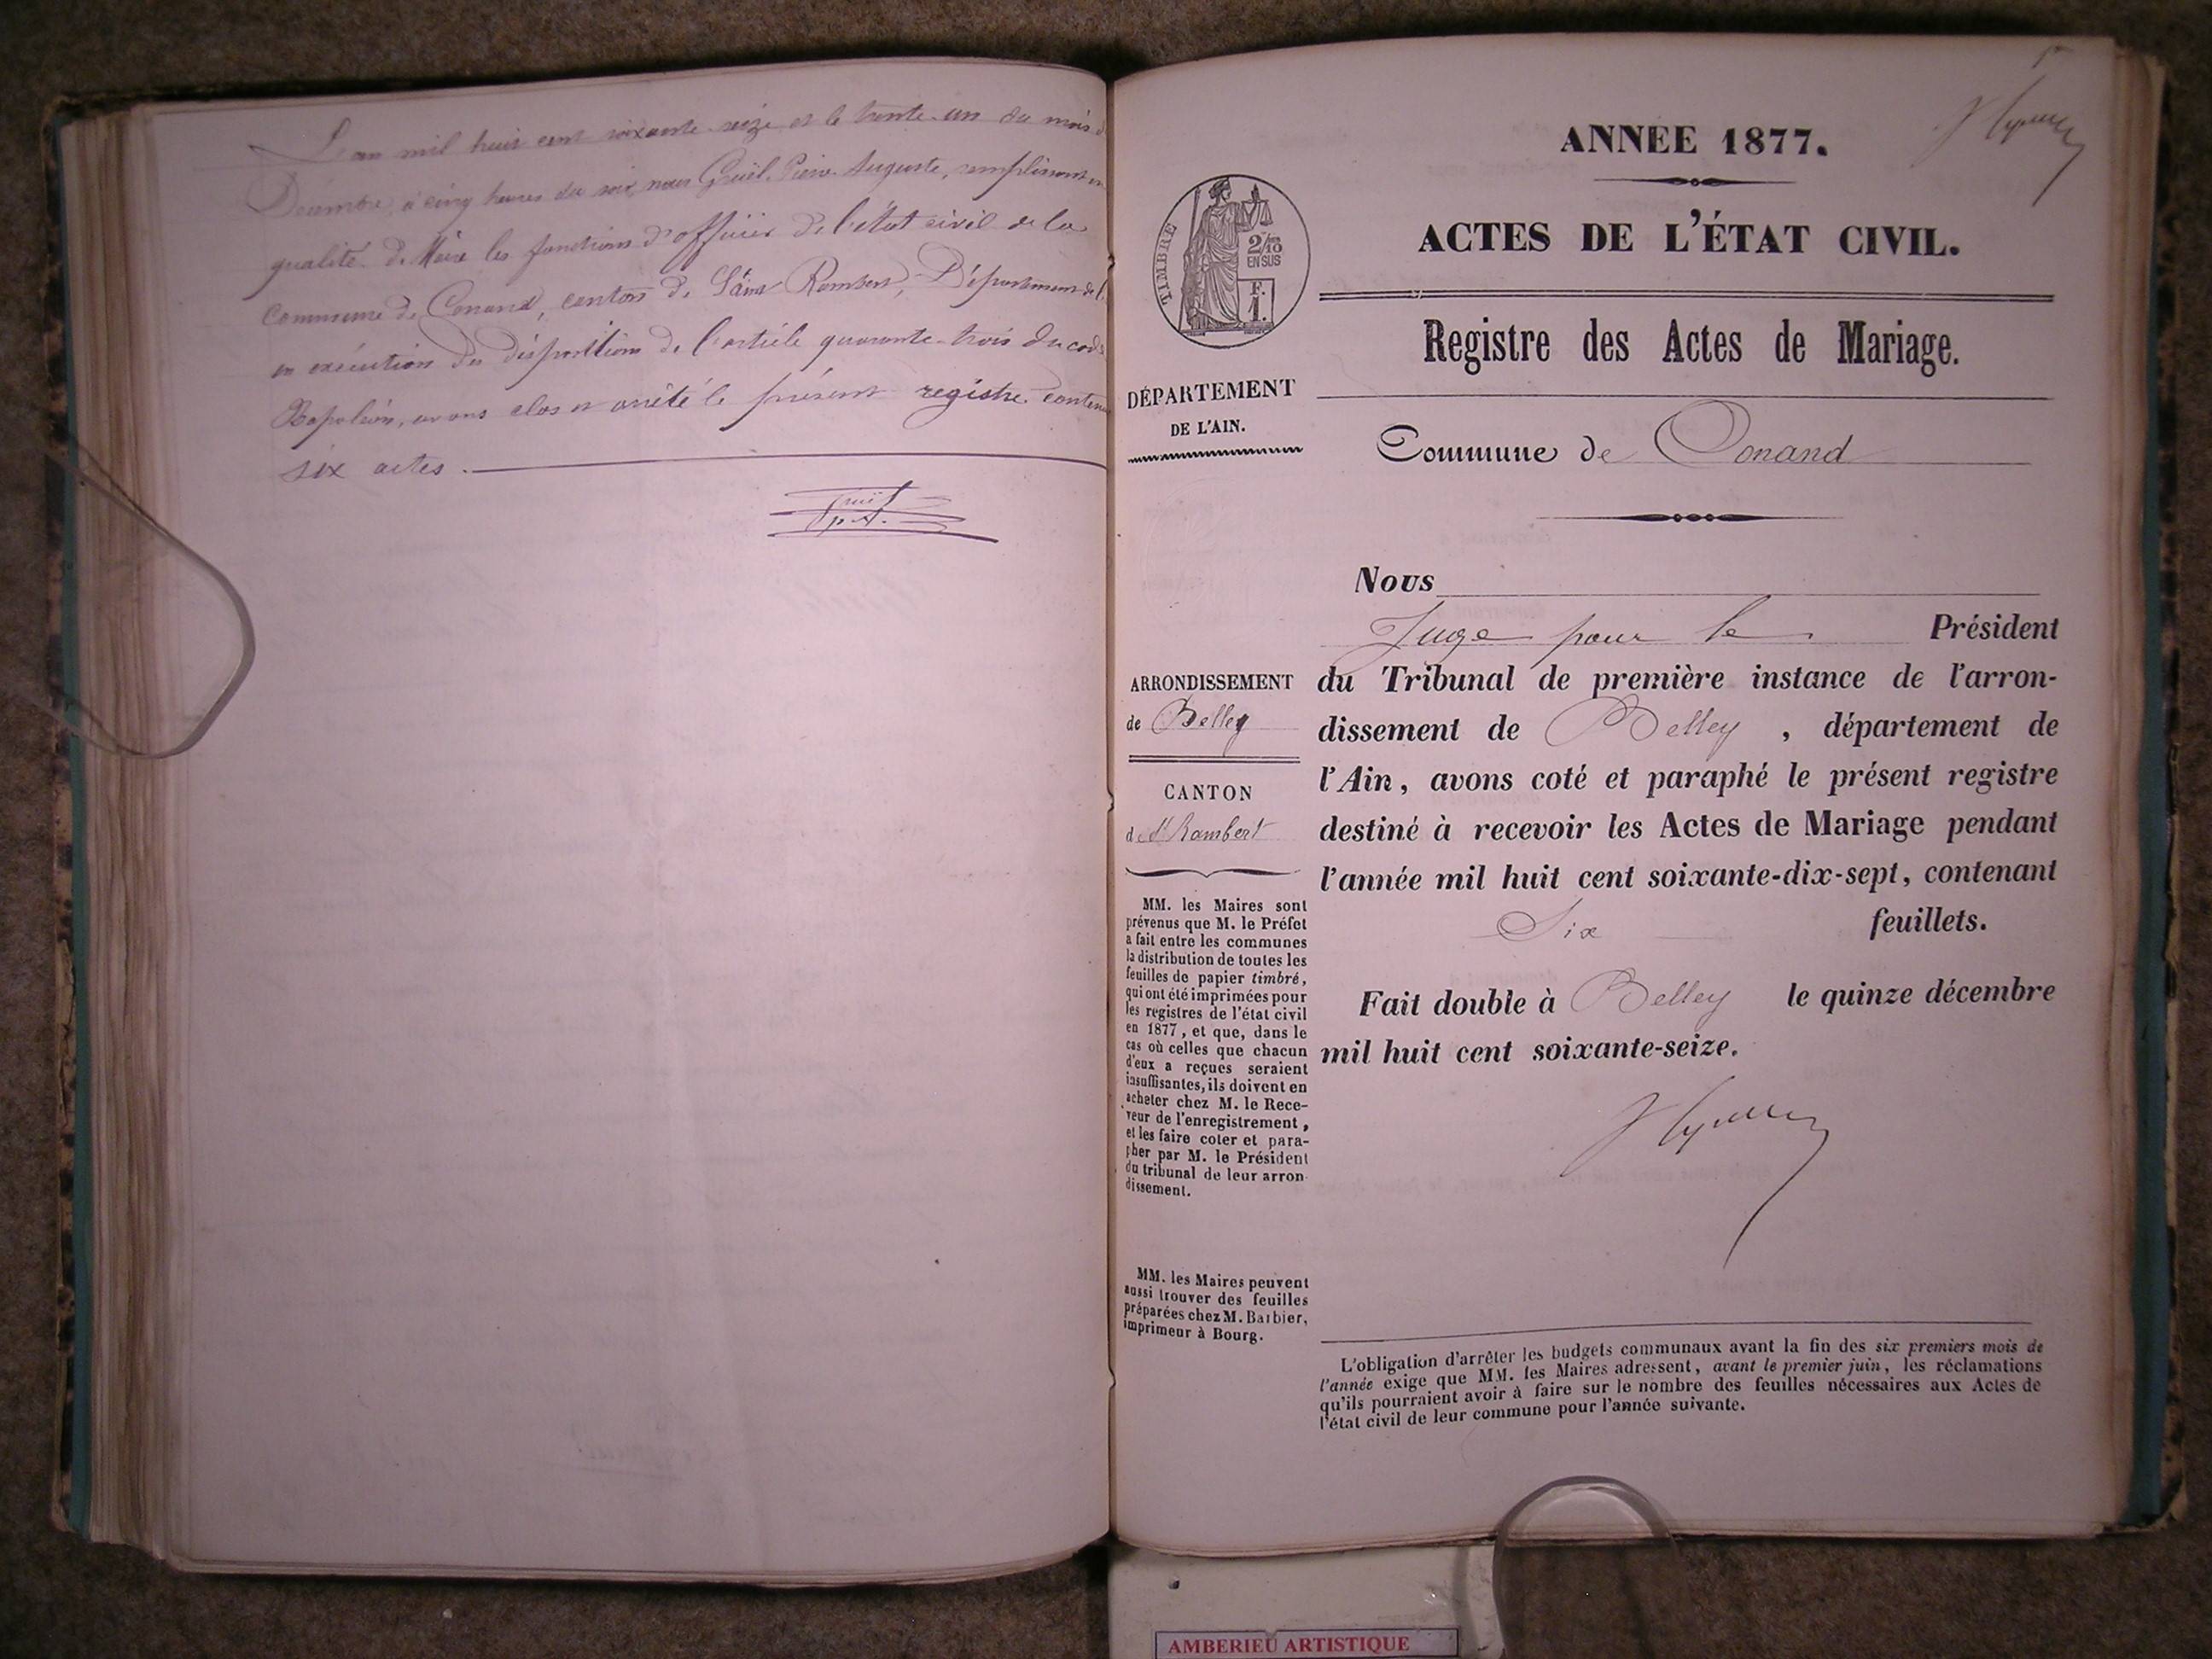 L'an mil huit cent soixante-seize et le trente-un du mois d
Décembre, à cinq heures du soir, nous Gruël Pierre Auguste, remplissant en
qualité de Maire les fonctions d'officier de l'état civil de la
Commune de Conand, canton de Saint Rambert, Département de l'
en exécution des dispositions de l'article quarante-trois du code
Napoléon, avons clos et arrêté le présent registre conten
six actes.
ANNEE 1877.
ACTES DE L'ÉTAT CIVIL.
Registre des Actes de Mariage.
Commune de Conand
TIMBRE
2/10
EN SUS
F.
1.
DÉPARTEMENT
DE L'AIN.
ARRONDISSEMENT
de Belley
CANTON
de St Rambert
MM. les Maires sont
prévenus que M. le Préfet
a fait entre les communes
la distribution de toutes les
feuilles de papier timbré,
qui ont été imprimées pour
les registres de l'état civil
en 1877, et que, dans le
cas où celles que chacun
d'eux a reçues seraient
insuffisantes, ils doivent en
acheter chez M. le Rece-
veur de l'enregistrement,
et les faire coter et para-
pher par M. le Président
du tribunal de leur arron-
dissement.
MM. les Maires peuvent
aussi trouver des feuilles
préparées chez M. Barbier,
imprimeur à Bourg.
Nous
Juge pour le Président
du Tribunal de première instance de l'arron-
dissement de Belley, département de
l'Ain, avons coté et paraphé le présent registre
destiné à recevoir les Actes de Mariage pendant
l'année mil huit cent soixante-dix-sept, contenant
Six feuillets.
Fait double à Belley le quinze décembre
mil huit cent soixante-seize.
L'obligation d'arrêter les budgets communaux avant la fin des six premiers mois de
l'année exige que MM. les Maires adressent, avant le premier juin, les réclamations
qu'ils pourraient avoir à faire sur le nombre des feuilles nécessaires aux Actes de
l'état civil de leur commune pour l'année suivante.
AMBERIEU ARTISTIQUE